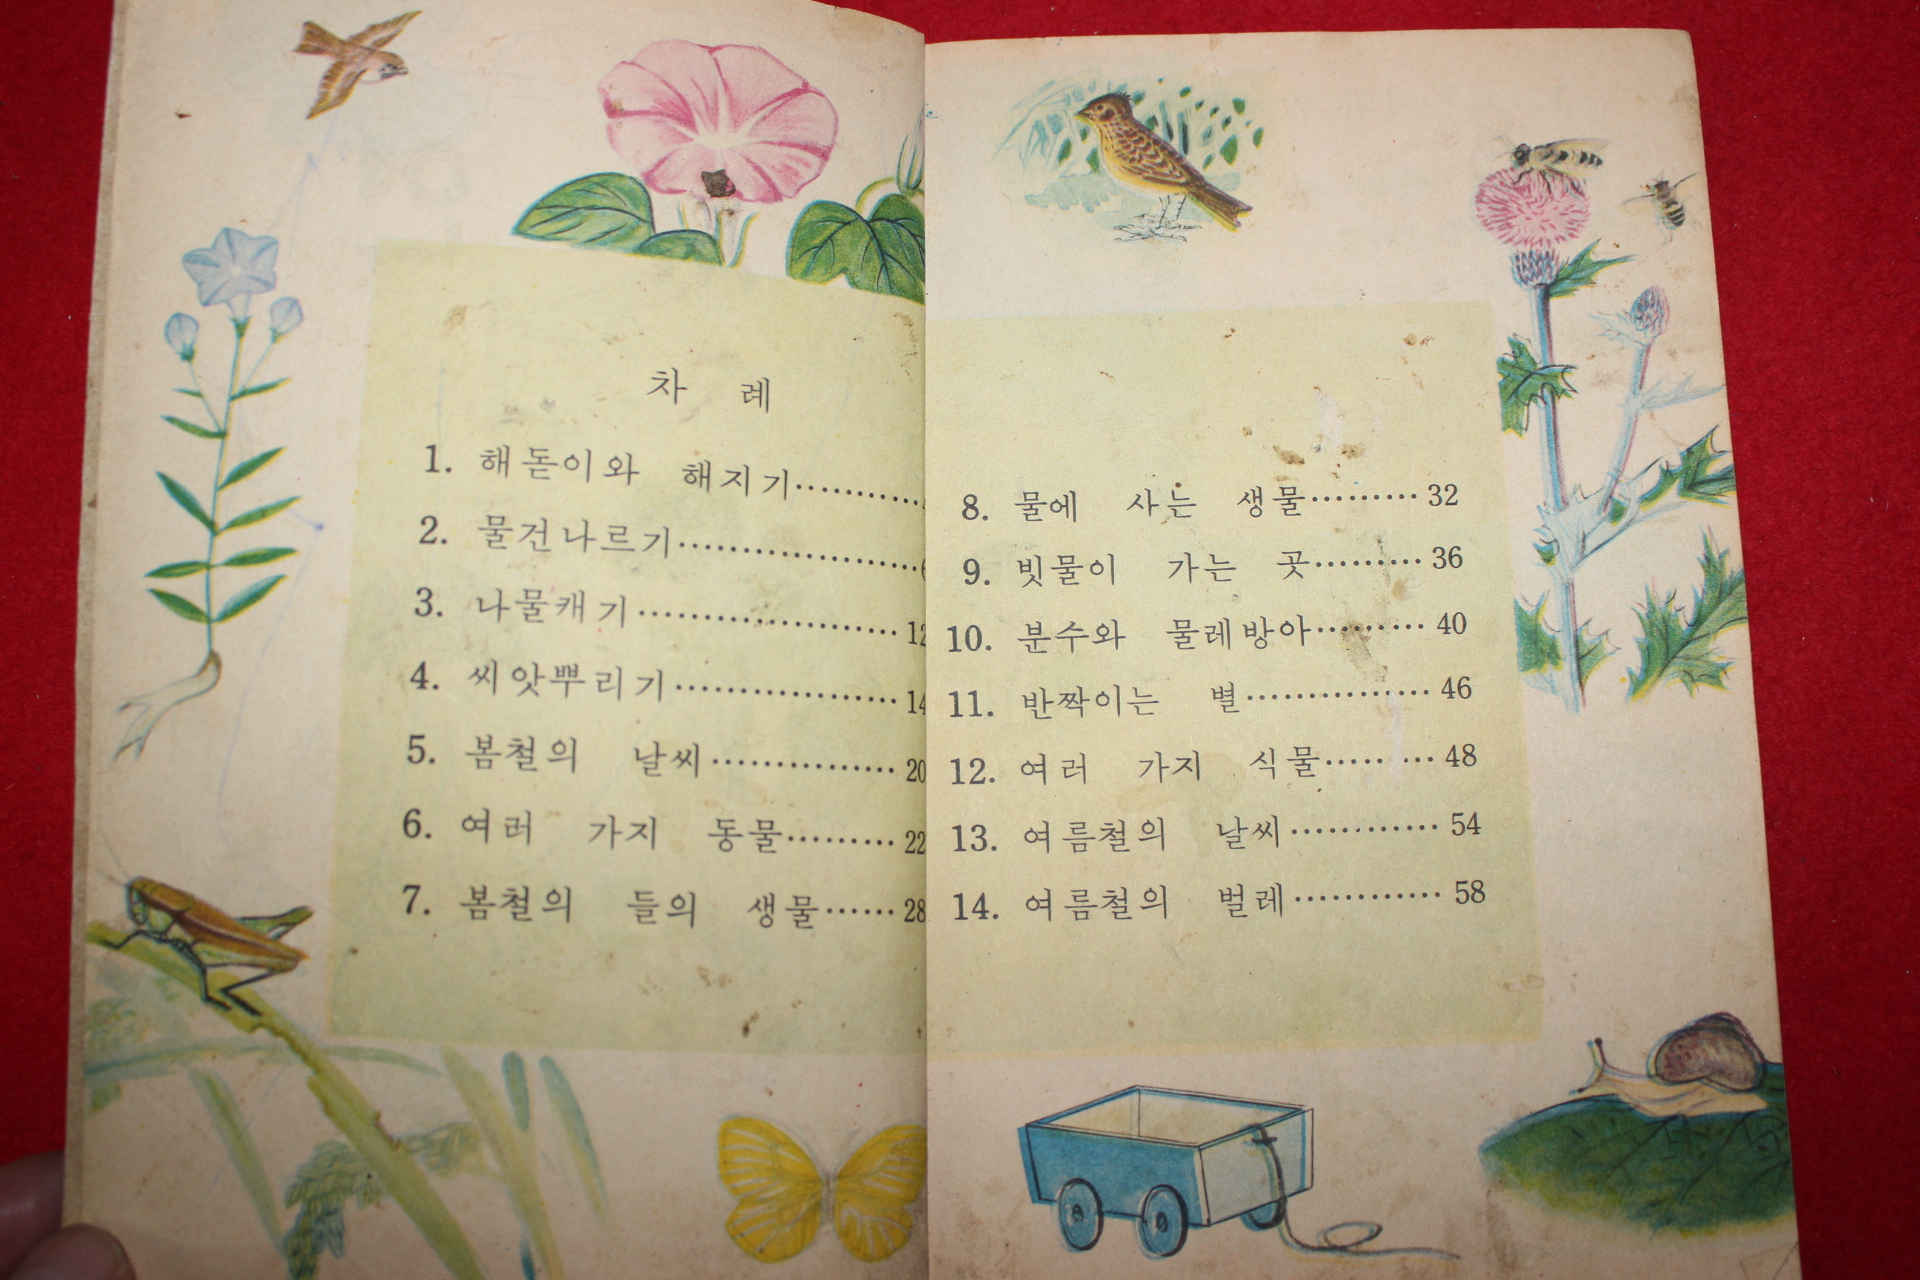 차 례
1. 해돋이와 해지기…………
2. 물건나르기……………………
3. 나물캐기…………………… 12
4. 씨앗뿌리기………………… 14
5. 봄철의 날씨……………… 20
6. 여러 가지 동물……… 22
7. 봄철의 들의 생물…… 28
8. 물에 사는 생물……… 32
9. 빗물이 가는 곳……… 36
10. 분수와 물레방아……… 40
11. 반짝이는 별…………… 46
12. 여러 가지 식물……… 48
13. 여름철의 날씨………… 54
14. 여름철의 벌레………… 58